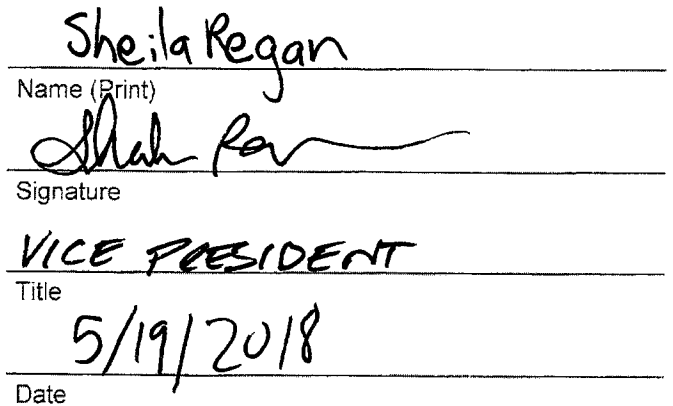 Sheila Regan
Name (Print)
Signature
VICE PRESIDENT
Title
5/19/2018
Date